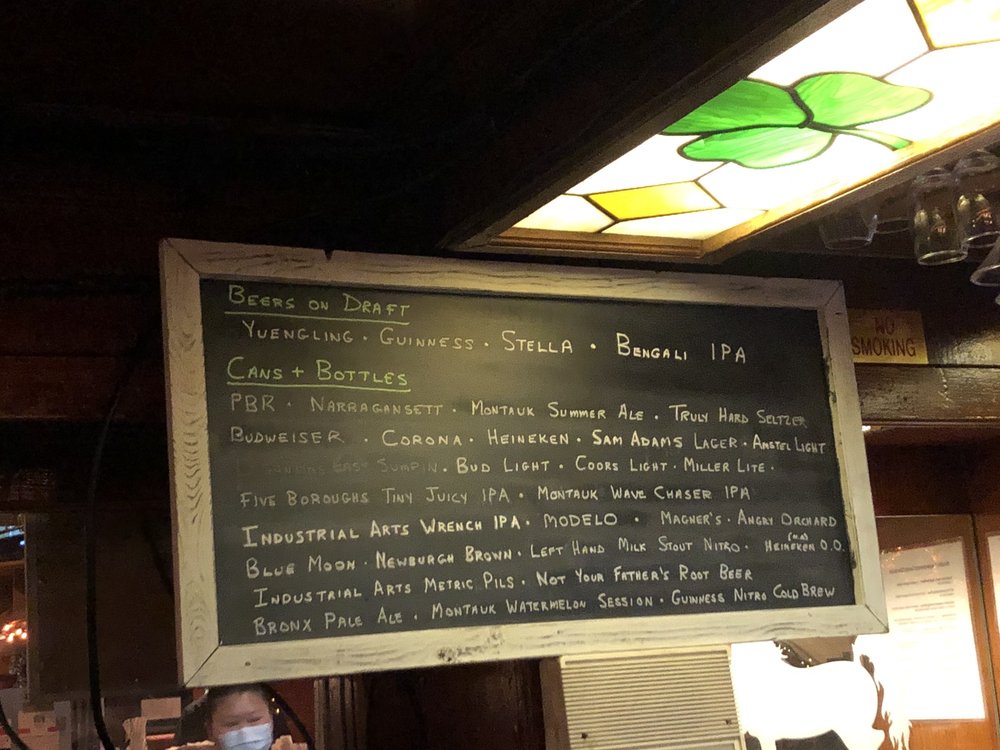 BEERS ON DRAFT
YUENGLING · GUINNESS · STELLA · BENGALI IPA
CANS + BOTTLES
PBR · NARRAGANSETT · MONTAUK SUMMER ALE · TRULY HARD SELTZER
BUDWEISER · CORONA · HEINEKEN · SAM ADAMS LAGER · AMSTEL LIGHT
SUMPIN · BUD LIGHT · COORS LIGHT · MILLER LITE ·
FIVE BOROUGHS TINY JUICY IPA · MONTAUK WAVE CHASER IPA
INDUSTRIAL ARTS WRENCH IPA · MODELO · MAGNER'S · ANGRY ORCHARD
BLUE MOON · NEWBURGH BROWN · LEFT HAND MILK STOUT NITRO · HEINEKEN 0.0.
INDUSTRIAL ARTS METRIC PILS · NOT YOUR FATHER'S ROOT BEER
BRONX PALE ALE · MONTAUK WATERMELON SESSION · GUINNESS NITRO COLD BREW
NO
SMOKING